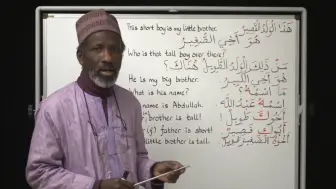 This short boy is my little brother. هَذَا الْوَلَدُ الْقَصِيرُ
هُوَ أَخِي الصَّغِيرُ
Who is that tall boy over there?
مَنْ ذَلِكَ الْوَلَدُ الطَّوِيلُ هُنَاكَ؟
He is my big brother. هُوَ أَخِي الْكَبِيرُ
What is his name? مَا اسْمُهُ؟
name is Abdullah. اِسْمُهُ عَبْدُ اللهِ
brother is tall! أَخُوكَ طَوِيلٌ!
father is short! أَبُوكِ قَصِيرٌ
little brother is tall.